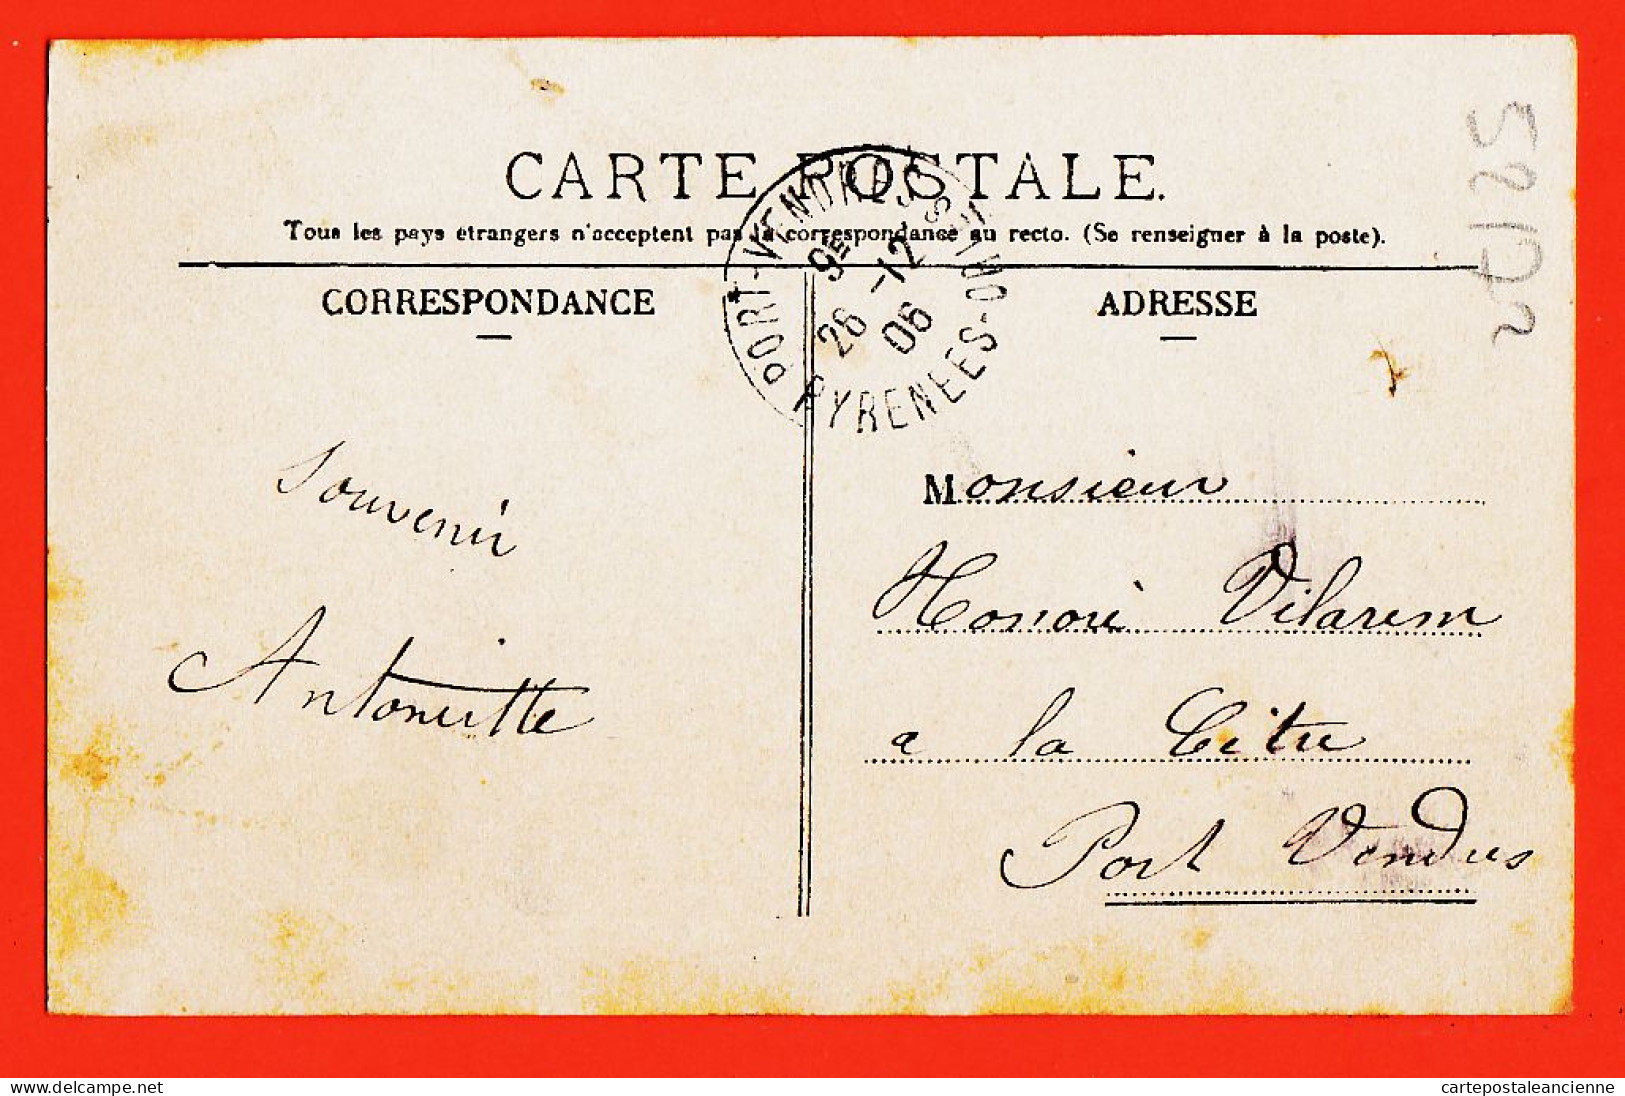 CARTE POSTALE.
Tous les pays étrangers n'acceptent pas la correspondance au recto. (Se renseigner à la poste).
CORRESPONDANCE
ADRESSE
PORT-VENDRES
PYRENEES-ORIles
26 -12
06
Souvenir
Antoinette
Monsieur
Honoré Vilarem
a la Citre
Port Vendres
delcampe.net
cartepostaleancienne